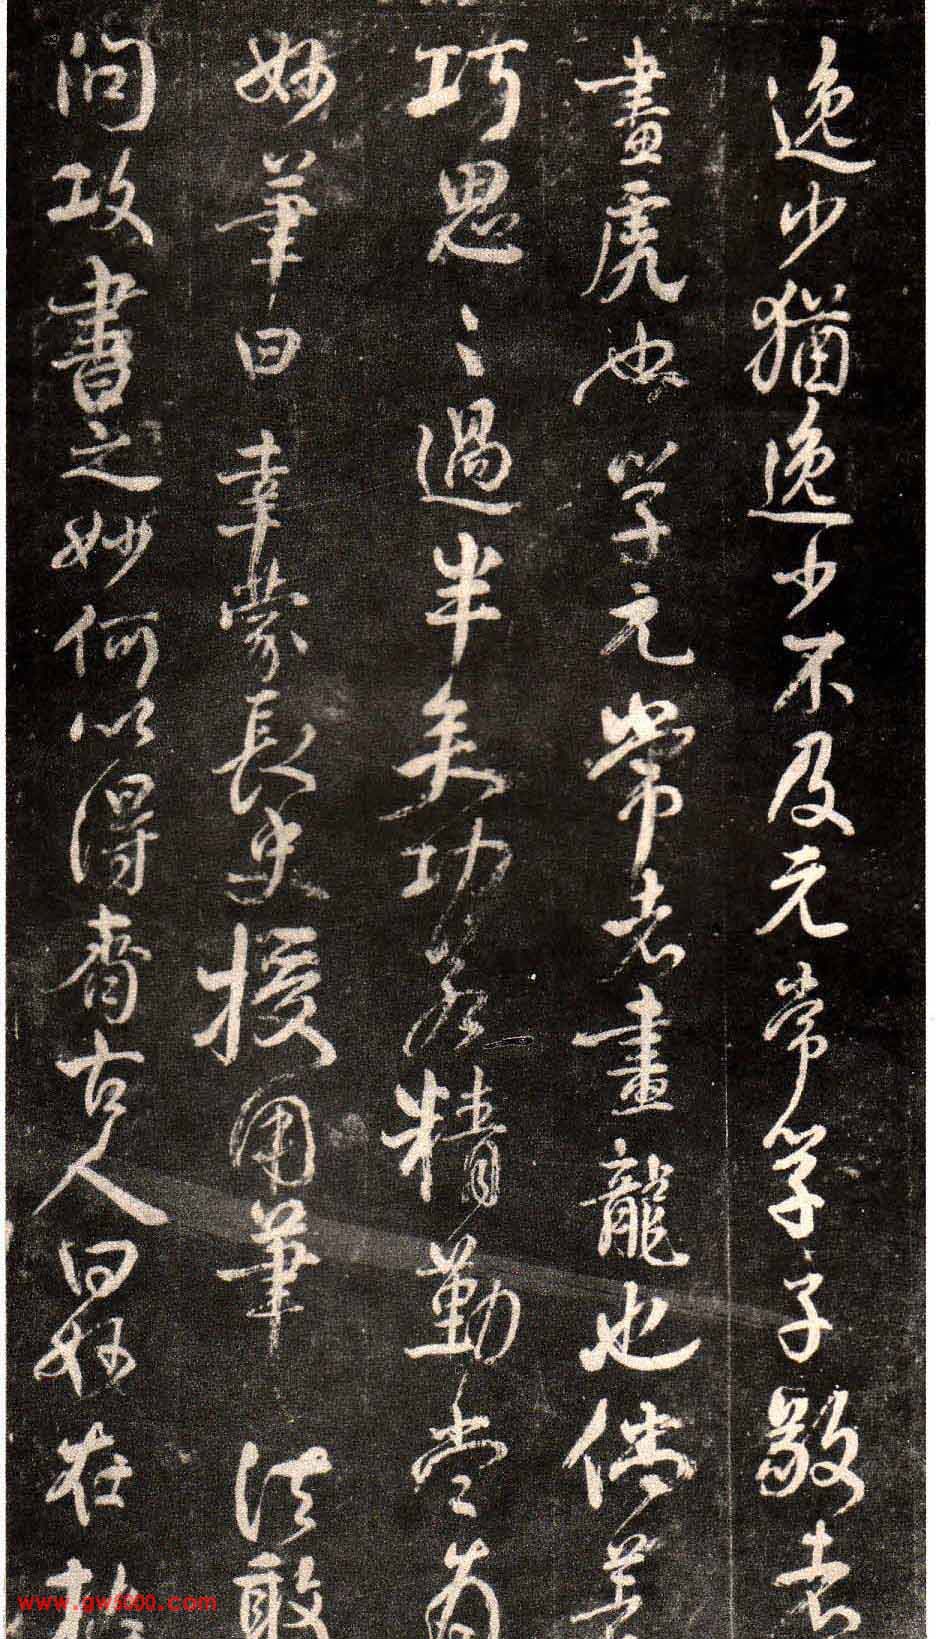 逸少猶逸少不及元常學子敬者
畫虎也學元常者畫龍也倘著
巧思思過半矣功若精勤當為
妙筆曰幸蒙長史授用筆法敢
問攻書之妙何以得齊古人曰妙在執
www.gw5000.com